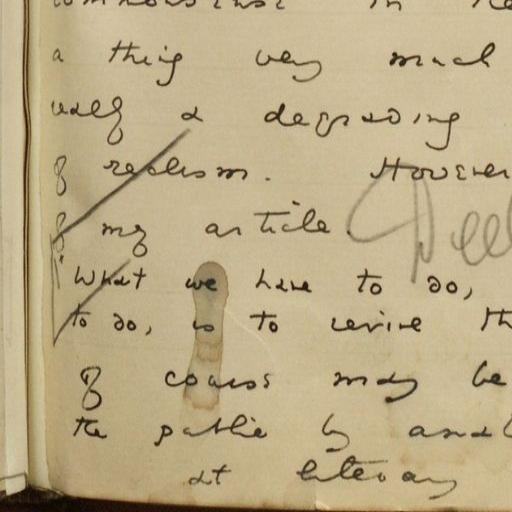 a thing very much
really a degrading
of realism. However
of my article.
What we have to do,
to do, is to revive th
of course may be
the public by
at literary